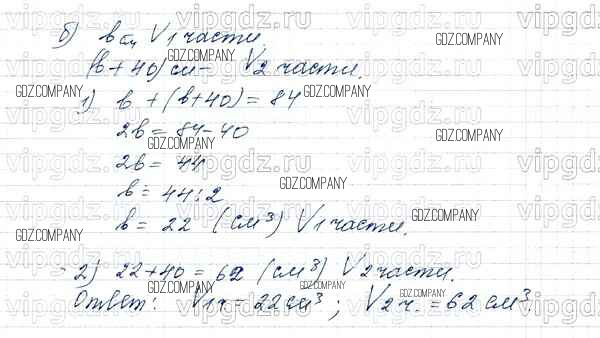 б) в см V 1 части
(в + 40) см - V 2 части.
1) в + (в+40) = 84
2в = 84-40
2в = 44
в = 44:2
в = 22 (см³) V 1 части.
2) 22+40 = 62 (см³) V 2 части.
Ответ: V1ч. = 22 см³; V2ч. = 62 см³.
vipgdz.ru
GDZ.COMPANY